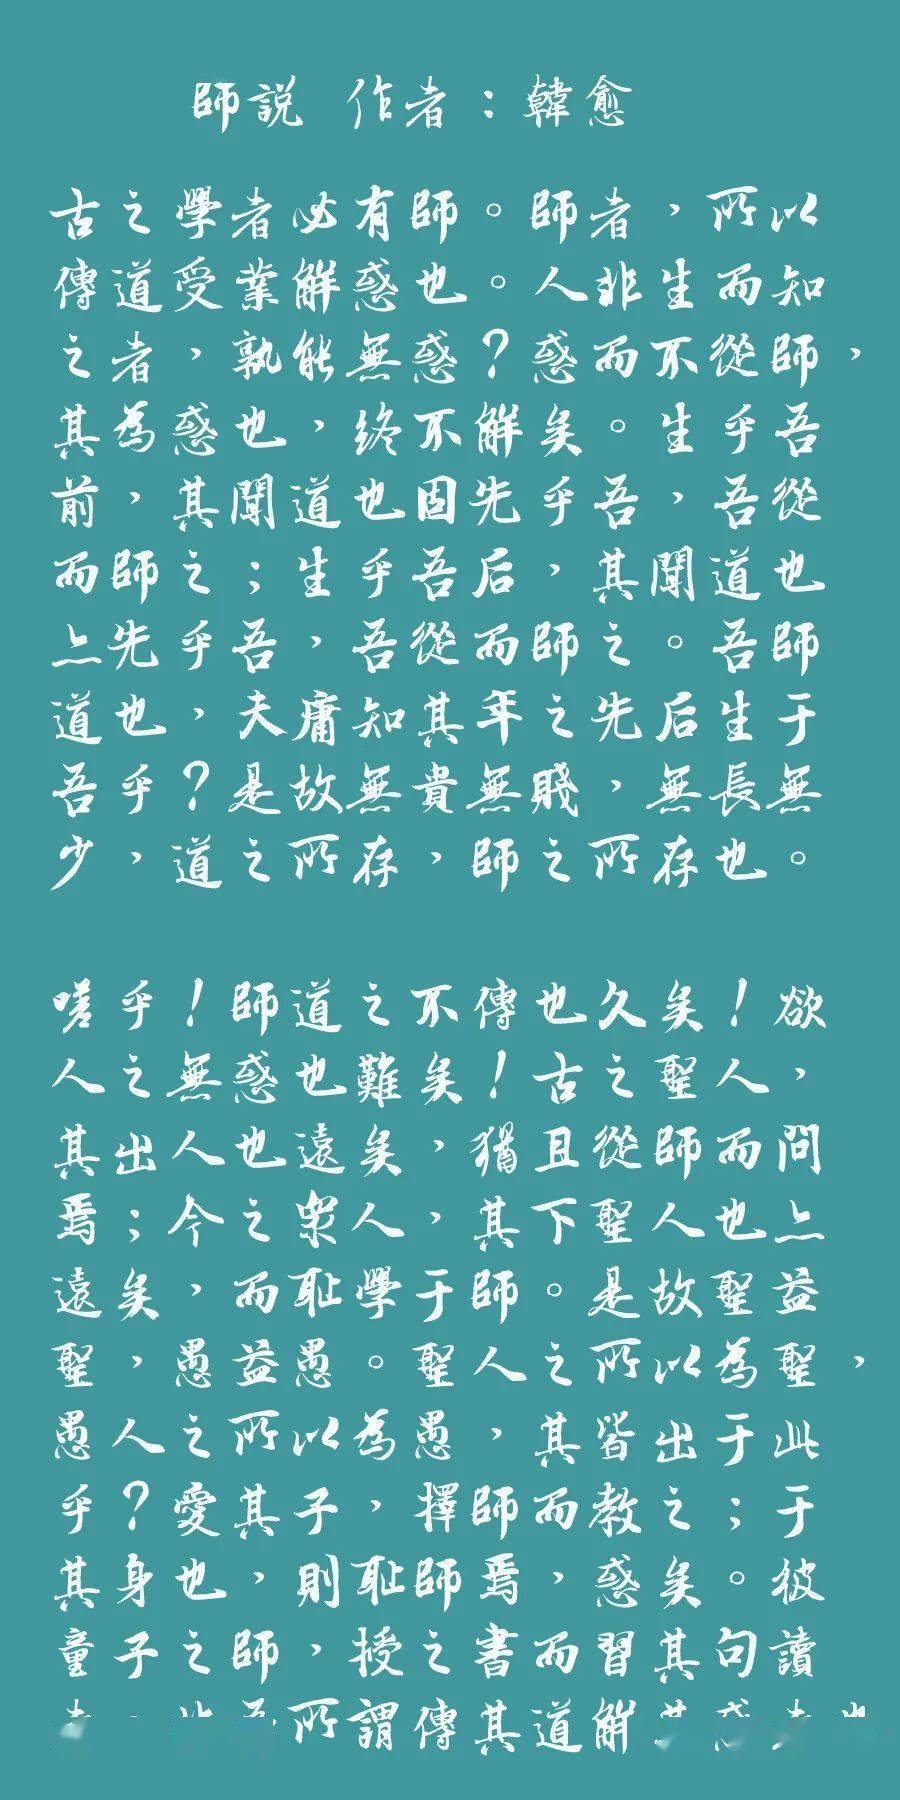 師説 作者：韓愈
古之學者必有師。師者，所以
傳道受業解惑也。人非生而知
之者，孰能無惑？惑而不從師，
其為惑也，終不解矣。生乎吾
前，其聞道也固先乎吾，吾從
而師之；生乎吾后，其聞道也
亦先乎吾，吾從而師之。吾師
道也，夫庸知其年之先后生于
吾乎？是故無貴無賤，無長無
少，道之所存，師之所存也。
嗟乎！師道之不傳也久矣！欲
人之無惑也難矣！古之聖人，
其出人也遠矣，猶且從師而問
焉；今之衆人，其下聖人也亦
遠矣，而恥學于師。是故聖益
聖，愚益愚。聖人之所以為聖，
愚人之所以為愚，其皆出于此
乎？愛其子，擇師而教之；于
其身也，則恥師焉，惑矣。彼
童子之師，授之書而習其句讀
所謂傳其道解其惑者也